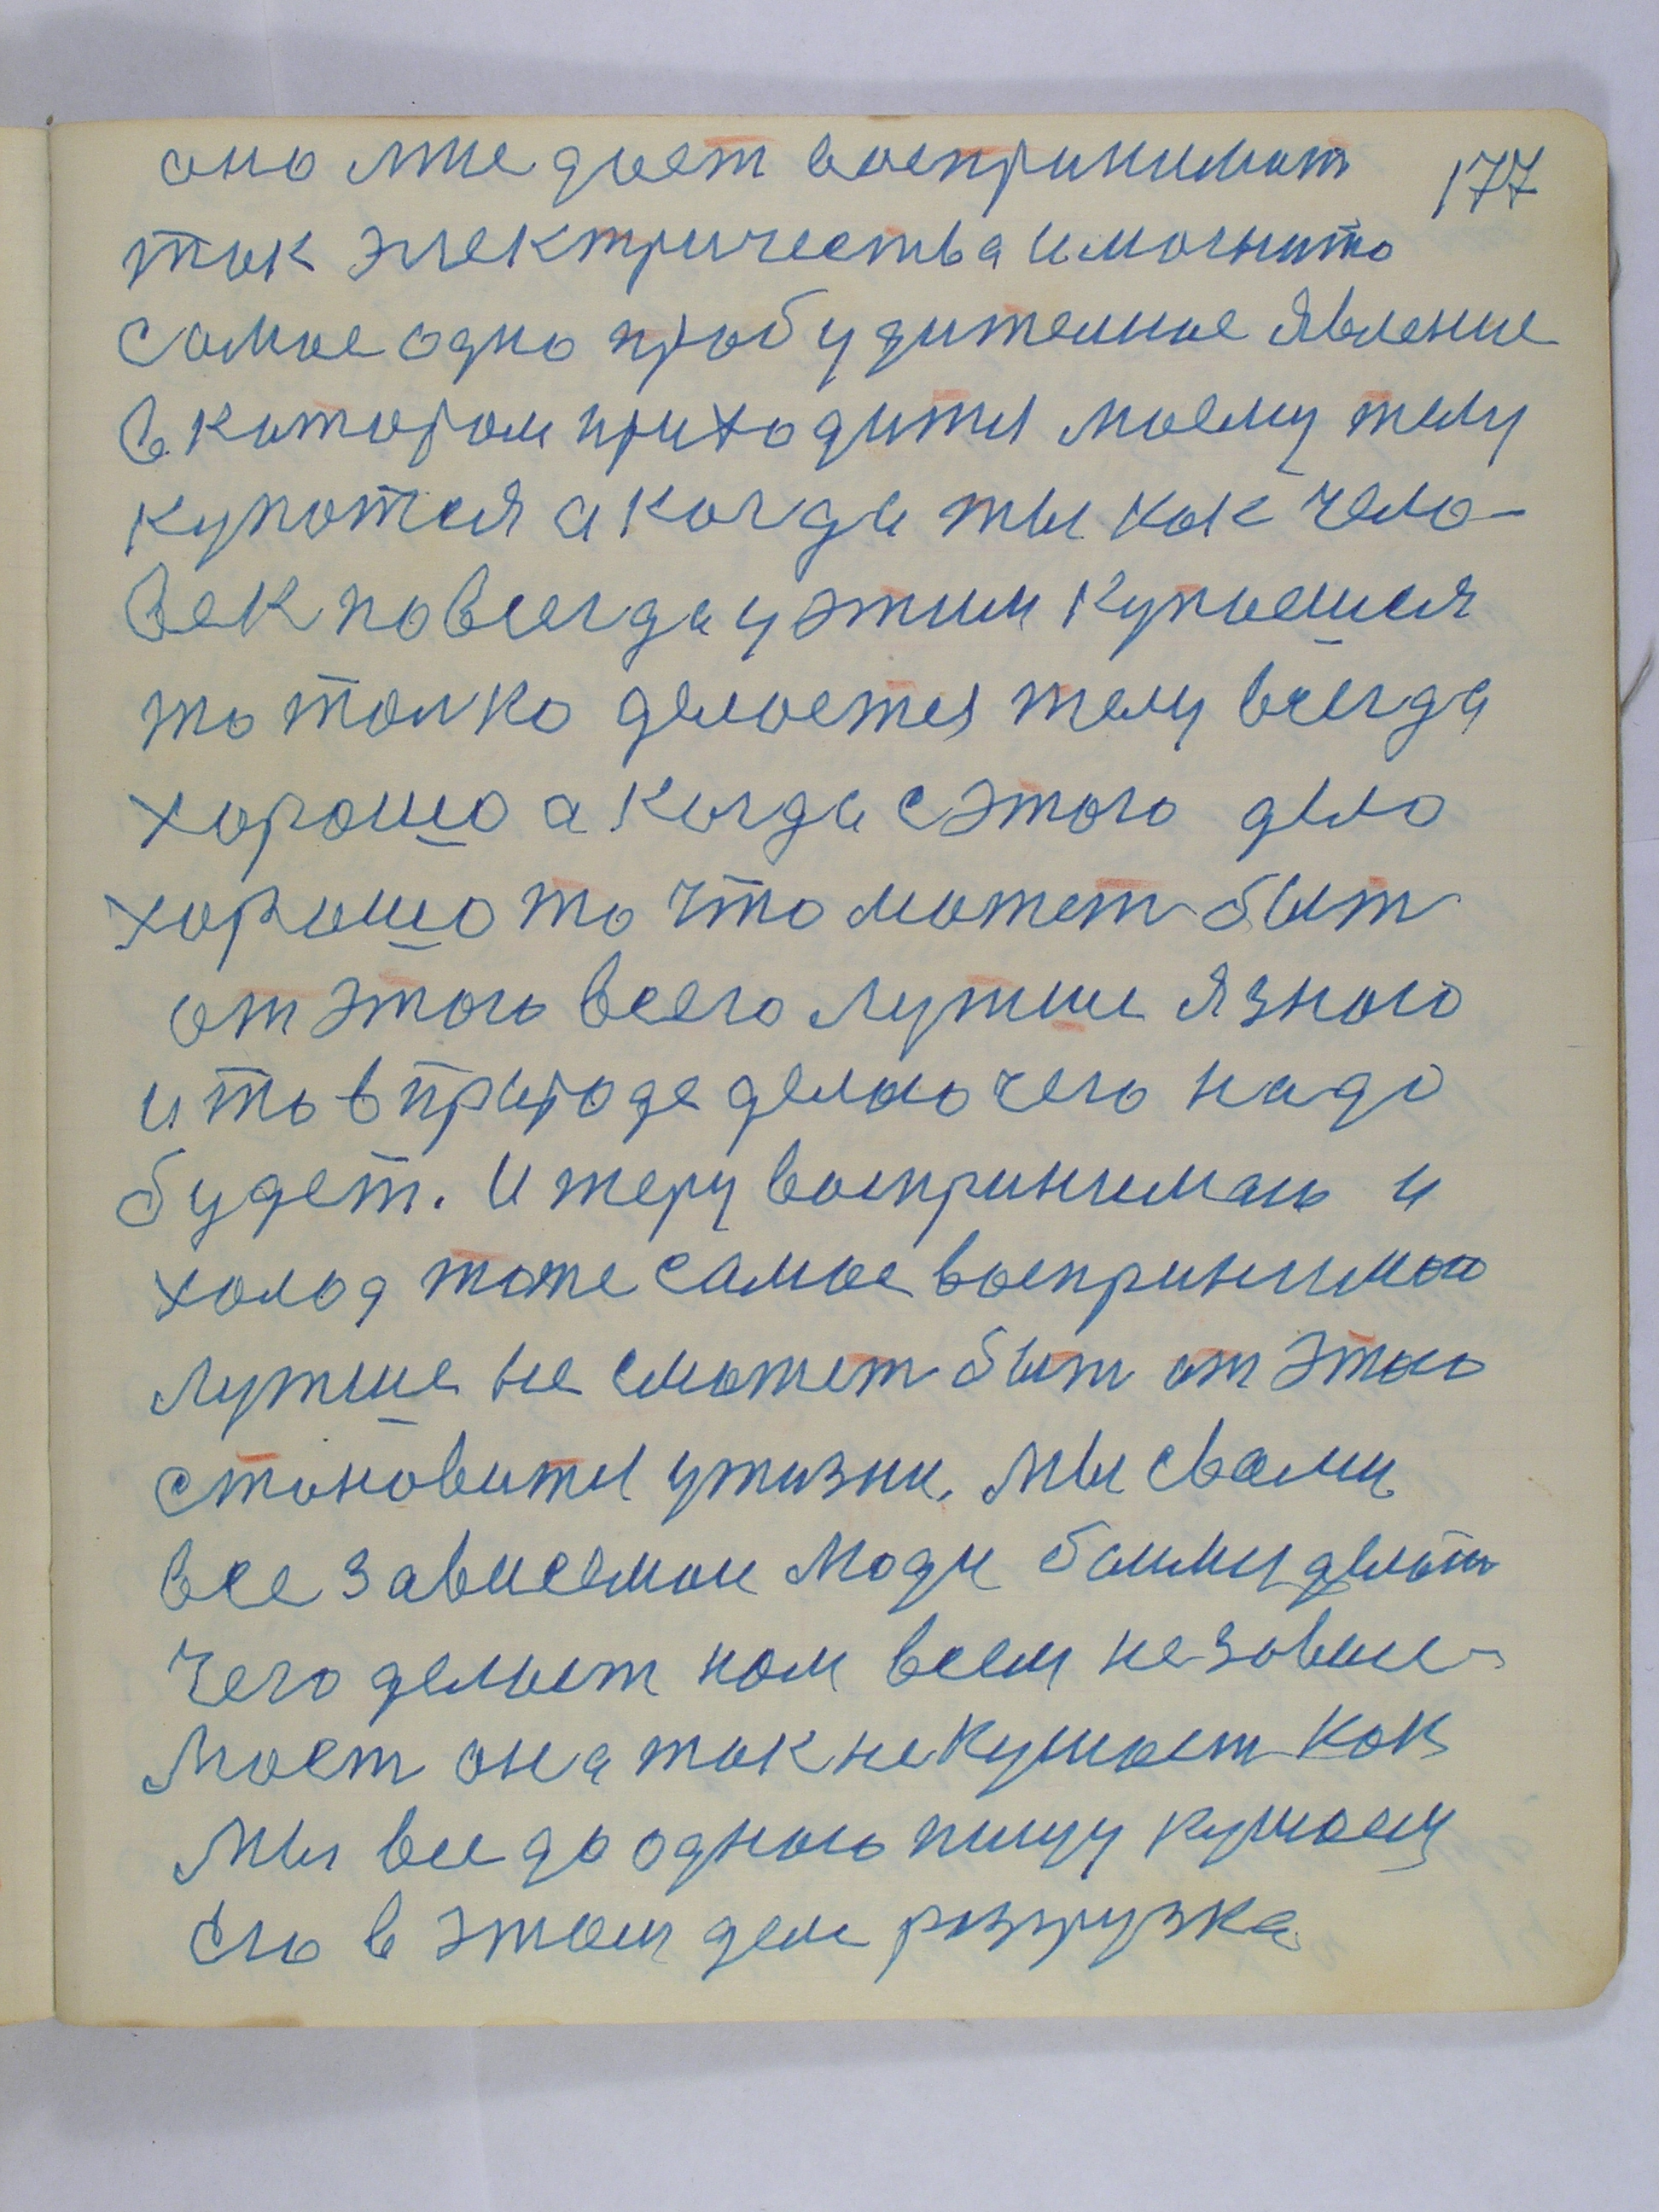 оно мне дает воспринимат 177
ток электричества и могнито
самое одно пробудителное явление
в котором приходится моему телу
купатся а когда ты как чело-
век повсегда у этим купаешся
то толко делается телу всегда
хорошо а когда с этого дело
хорошо то что может быт
от этого всего лутше я знаю
и то в природе делаю чего надо
будет. И жару воспринимаю и
холод тоже самое воспринимаю
лутше не сможет быт от этого
становится у жизни. Мы с вами
все зависемои люди делат
чего делает нам всем независ-
мает она так не кушает как
мы все до одного пищу кушаем
его в этом деле розгрузка